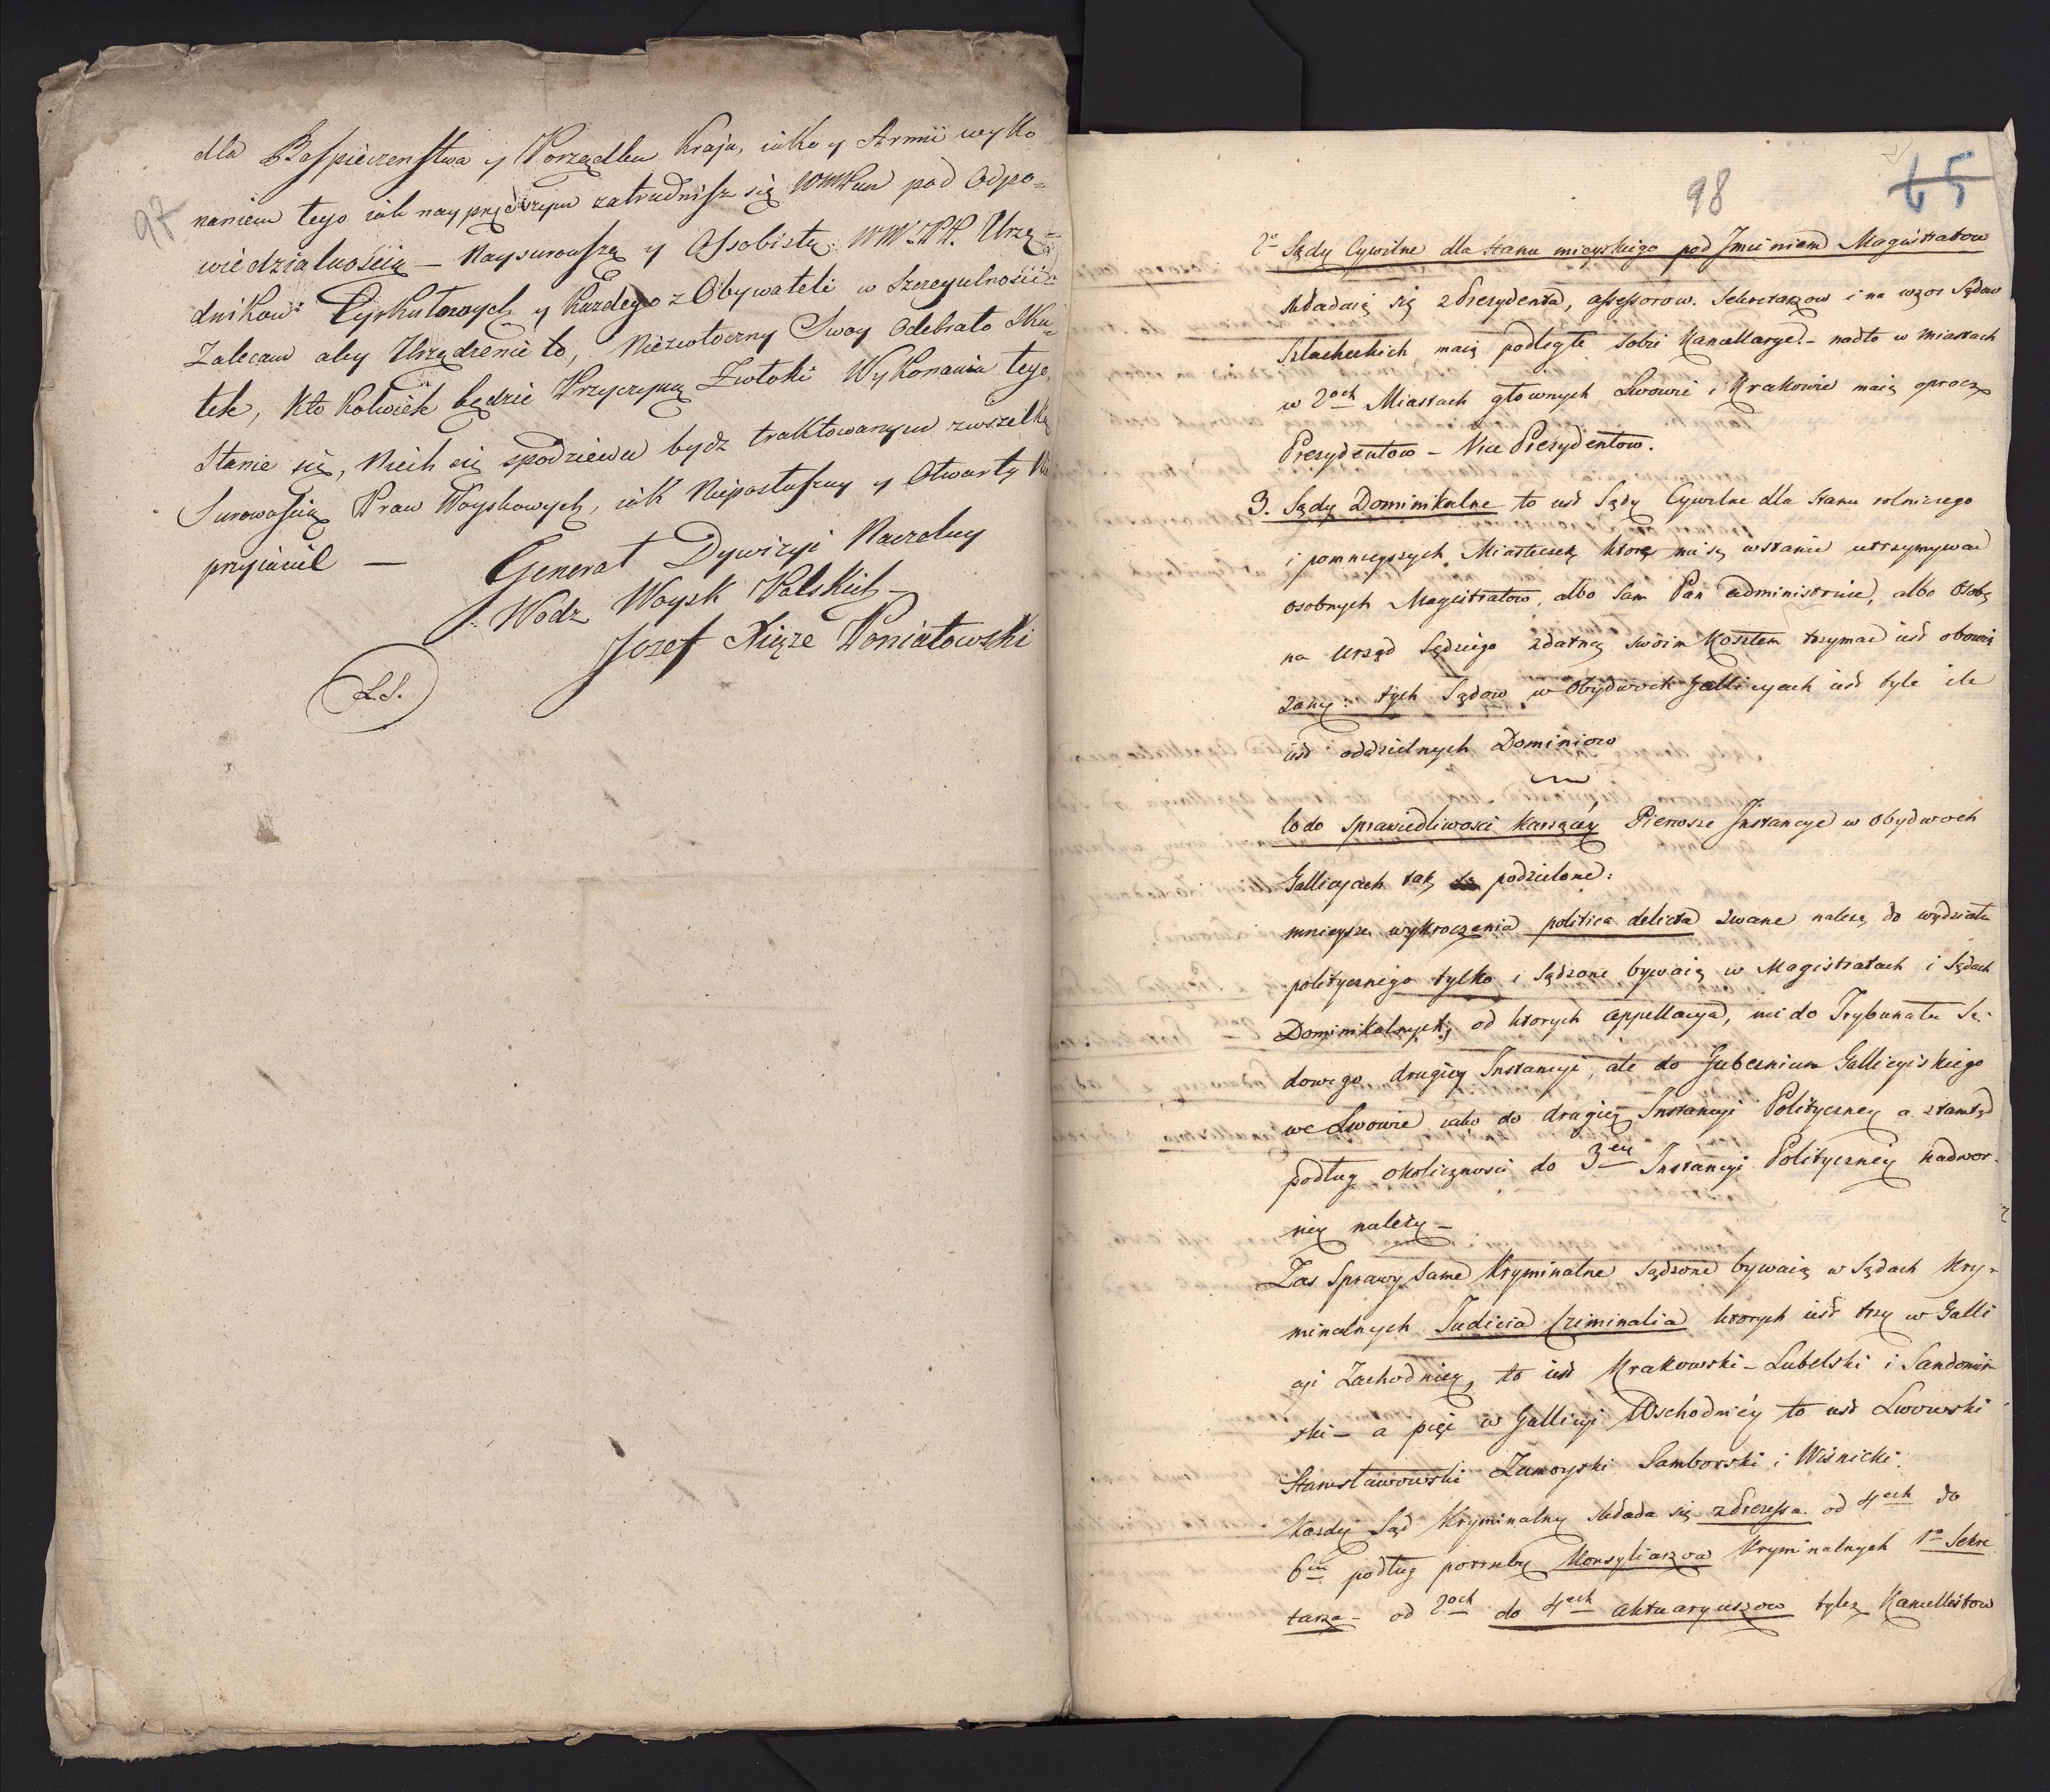 97
dla Bespieczenstwa y Porządku Kraju, iako y Armii wyko
naniem tego iak nayprędszym zatrudnisz się WMPan pod Odpo=
wiedzialnością — Naysurowszą y Ossobistą WW.PP. Urzę=
dnikow Cyrkułowych y Każdego z Obywateli w Szczegulności
Zalecam aby Urządzenie to, Niezwłoczny Swoy Odebrało Sku=
tek, Kto Kolwiek będzie Przyczyną Zwłoki Wykonania tego,
Stanie się, Niech się spodziewa bydz traktowanym zwszelką
Surowością Praw Woyskowych, iak Nieposłuszny y Otwarty Nie
przyiaciel —
Generał Dywizyi Naczelny
Wodz Woysk Polskich —
Jozef Xiąże Poniatowski
L.S.
98
65
2o Sądy Cywilne dla stanu mieyskiego pod Jmieniem Magistratow
składaią się z Prezydenta, assessorow. Sekretarzow i na wzor Sądow
Szlacheckich maią podległe sobie Kancellarye. – nadto w miastach
w 2och Miastach głownych Lwowie i Krakowie maią oprocz
Prezydentow – Vice Prezydentow.
3. Sądy Dominikalne to iest Sądy Cywilne dla stanu rolniczego
i pomnieyszych Miasteczek ktore nie są wstanie utrzymywac
osobnych Magistratow, albo Sam Pan administruie, albo Osobę
na urząd Sędziego zdatną swoim Kosztem trzymac iest obowią
zany: tych Sądow w Obydwoch Gallicyach iest tyle ile
iest oddzielnych Dominiow
Co do sprawiedliwosci karzącey Pierwsze Instancye w obydwoch
Gallicyach tak są podzielone:
mnieysze wykroczenia politica delicta zwane należą do wydziału
politycznego tylko i sądzone bywaią w Magistratach i Sądach
Dominikalnych, od ktorych appellacya, nie do Trybunału Są-
dowego drugiey Instancyi, ale do Gubernium Gallicyiskiego
we Lwowie iako do drugiey Instancyi Polityczney a ztamtąd
podług okoliczności do 3ey Instancyi Polityczney nadwor-
ney należy –
Zas Sprawy same Kryminalne sądzone bywaią w Sądach Kry-
minalnych Judicia Criminalia ktorych iest trzy w Galli
cyi Zachodniey, to iest Krakowski – Lubelski i Sandomir
ski – a pięć w Gallicyi Wschodniey to iest Lwowski
Stanisławowski Zamoyski Samborski i Wiśnicki.
Kazdy Sąd Kryminalny składa się z Prezessa od 4ech do
6iu podług potrzeby Konsyliarzow Kryminalnych 1o Sekre
tarza – od 2och do 4ech aktuaryuszow tylez Kancellistow